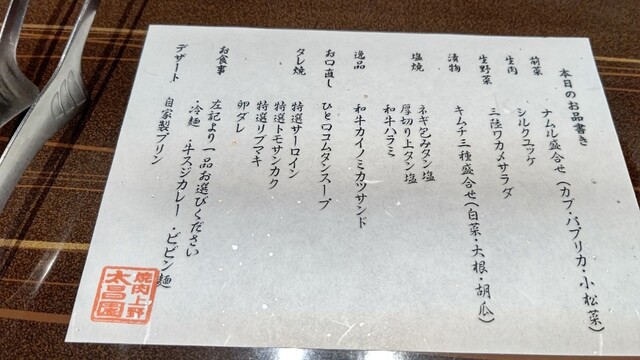 本日のお品書き
前菜 ナムル盛合せ(カブ・パプリカ・小松菜)
生肉 シルクユッケ
生野菜 三陸ワカメサラダ
漬物 キムチ三種盛合せ(白菜・大根・胡瓜)
塩焼 ネギ包みタン塩
厚切り上タン塩
和牛ハラミ
逸品 和牛カイノミカツサンド
お口直し ひと口コムタンスープ
タレ焼 特選サーロイン
特選トモサンカク
特選リブマキ
卵ダレ
お食事 左記より一品お選びください
・冷麺 ・牛スジカレー ・ビビン麺
デザート 自家製プリン
焼肉上野
太昌園